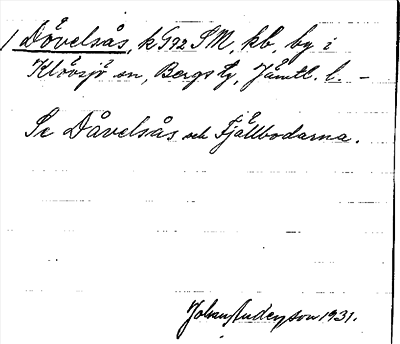 1 Dövelsås, k G92 SM, kb. by i
Klövsjö sn, Bergs tg, Jämtl. l. –
Se Dåvelsås och Fjällbodarna.
Johan Anderson 1931.